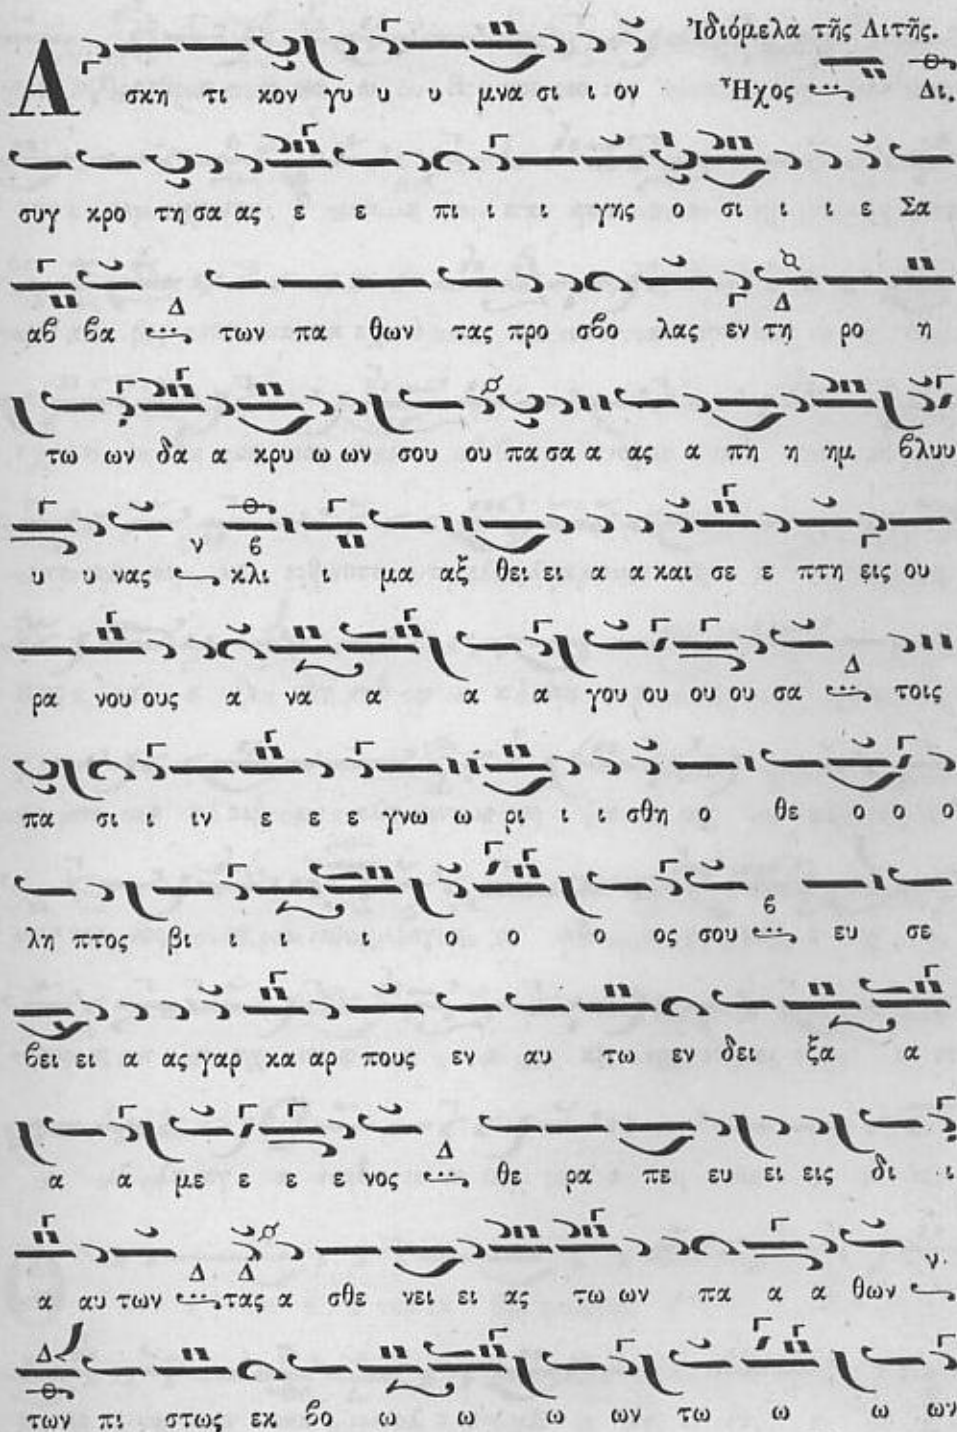 Ἰδιόμελα τῆς Λιτῆς.
Α σκη τι κον γυ υ υ μνα σι ι ον Ἦχος Δι.
συγ κρο τη σα ας ε ε πι ι ι γης ο σι ι ι ε Σα
αβ βα Δ των πα θων τας προ σβο λας εν τη Δ ρο η
τω ων δα α κρυ ω ων σου ου πα σα α ας α πη η ημ βλυυ
υ υ νας ν β κλι ι μα αξ θει ει α α και σε ε πτη εις ου
ρα νου ους α να α α α γου ου ου ου σα Δ τοις
πα σι ι ιν ε ε ε γνω ω ρι ι ι σθη ο θε ο ο ο
λη πτος βι ι ι ι ο ο ο ος σου β ευ σε
βει ει α ας γαρ κα αρ πους εν αυ τω εν δει ξα α
α α με ε ε ε νος Δ θε ρα πε ευ ει εις δι ι
α αυ των Δ Δ τας α σθε νει ει ας τω ων πα α α θων ν
Δ των πι στως εκ βο ω ω ω ων τω ω ω ων